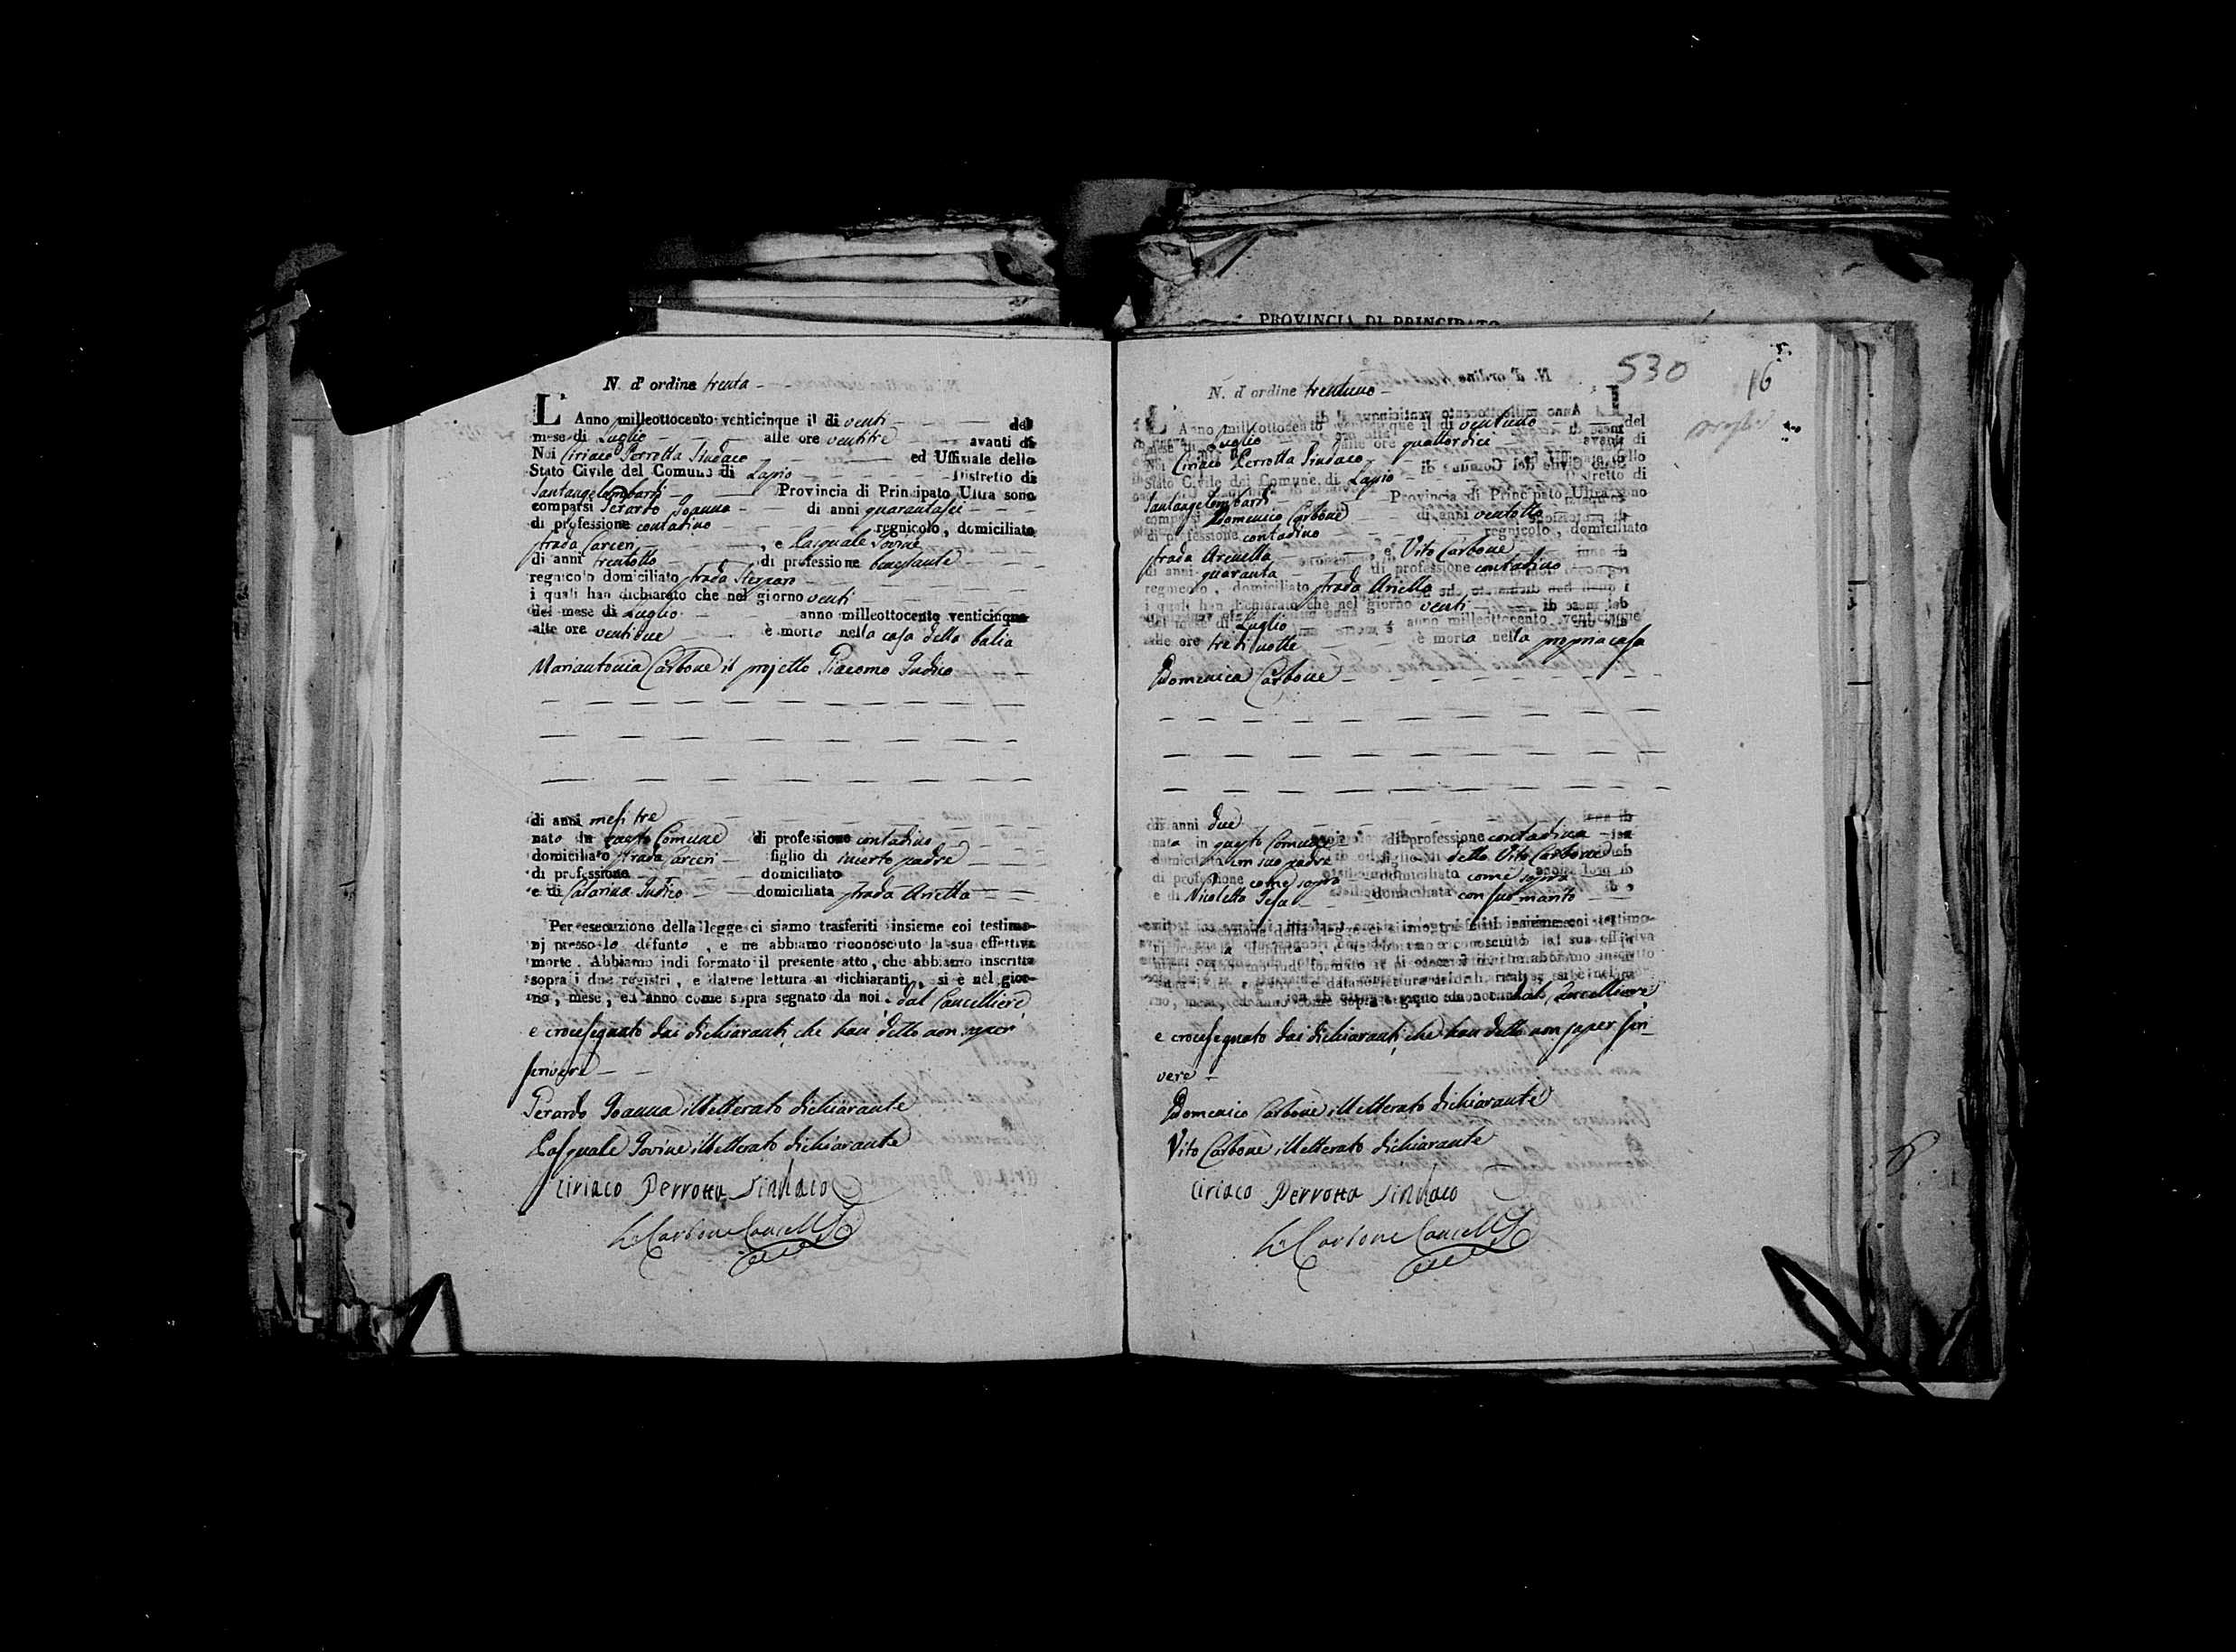 N. d'ordine trenta
L'Anno milleottocento venticinque il di venti del
mese di Luglio alle ore ventitre avanti di
Noi Ciriaco Perrotta Sindaco ed Uffiziale dello
Stato Civile del Comune di Lapio Distretto di
Santangelombardi Provincia di Principato Ultra sono
comparsi Gerardo Joanna di anni quarantasei
di professione contadino regnicolo, domiciliato
strada Carceri, e Pasquale Iovine
di anni trentotto di professione benestante
regnicolo domiciliato strada
i quali han dichiarato che nel giorno venti
del mese di Luglio anno milleottocento venticinque
alle ore ventidue è morto nella casa della balia
Mariantonia Carbone il projetto Giacomo Iudico
di anni mesi tre
nato in questo Comune di professione contadino
domiciliato strada Carceri figlio di incerto padre
di professione domiciliato
e di Catarina Iudico domiciliata strada Arietta
Per esecuzione della legge ci siamo trasferiti insieme coi testimo-
nj presso lo defunto, e ne abbiamo riconosciuto la sua effettiva
morte. Abbiamo indi formato il presente atto, che abbiamo inscritto
sopra i due registri, e datene lettura ai dichiaranti, si è nel gior-
no, mese, ed anno come sopra segnato da noi. dal Cancelliere
e crocesegnato dai dichiaranti, che han detto non saper
scrivere
Gerardo Joanna illetterato dichiarante
Pasquale Iovine illetterato dichiarante
Ciriaco Perrotta Sindaco
Carbone Cancell
PROVINCIA DI PRINCIPATO
530
16
N. d'ordine trentuno
L'Anno milleottocento venticinque il di ventuno del
mese di Luglio alle ore quattordici avanti di
Noi Ciriaco Perrotta Sindaco ed Uffiziale dello
Stato Civile del Comune di Lapio Distretto di
Santangelombardi Provincia di Principato Ultra sono
comparsi Domenico Carbone di anni ventotto
di professione contadino regnicolo, domiciliato
strada Arcuella, e Vito Carbone
di anni quaranta di professione contadino
regnicolo, domiciliato strada Ariella
i quali han dichiarato che nel giorno venti
del mese di Luglio anno milleottocento venticinque
alle ore tre di notte è morta nella propria casa
Domenica Carbone
di anni due
nata in questo Comune di professione contadina
domiciliata con suo padre figlia di detto Vito Carbone
di professione come sopra domiciliato come sopra
e di Nicoletta Tesa domiciliata con suo marito
no, mese, ed anno come sopra segnato da noi dal Cancelliere
e crocesegnato dai dichiaranti, che han detto non saper scri-
vere
Domenico Carbone illetterato dichiarante
Vito Carbone illetterato dichiarante
Ciriaco Perrotta Sindaco
Carbone Cancell